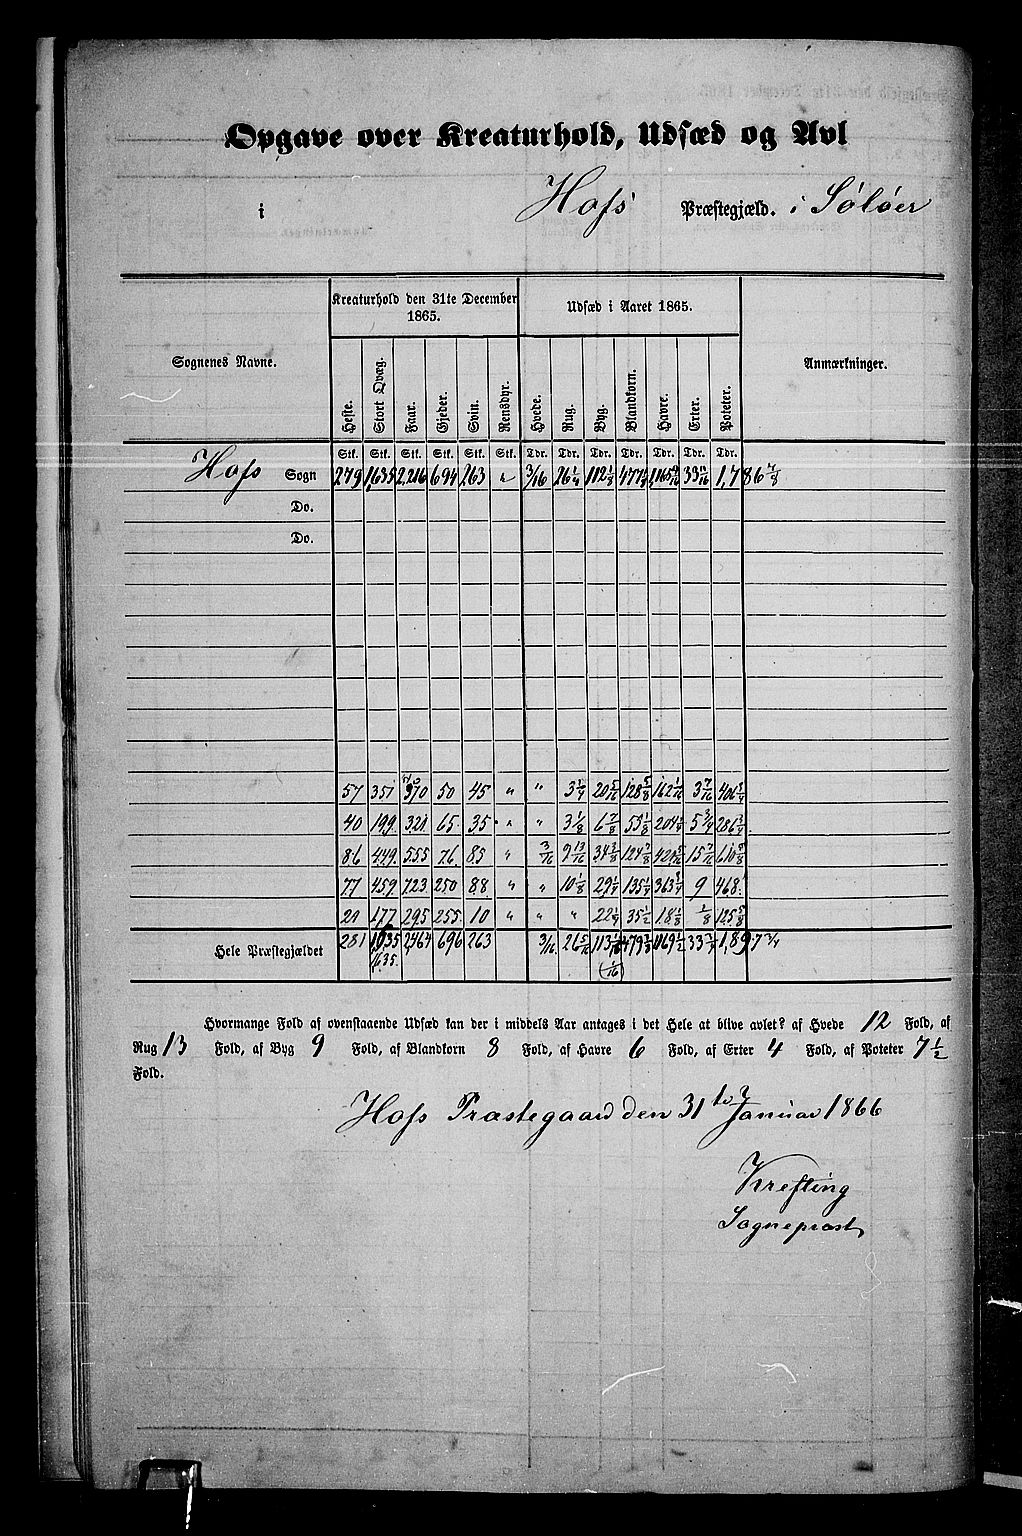 Opgave over Kreaturhold, Udsæd og Avl
i Hofs Præstegjæld. i Sølöer
Sognenes Navne. Kreaturhold den 31te December 1865. Udsæd i Aaret 1865. Anmærkninger.
Heste. Stort Qvæg. Faar. Gjeder. Svin. Rensdyr. Hvede. Rug. Byg. Blandkorn. Havre. Erter. Poteter.
Stk. Stk. Stk. Stk. Stk. Stk. Tdr. Tdr. Tdr. Tdr. Tdr. Tdr. Tdr.
Hofs Sogn 279 1,635 2,216 694 263 " 3/16 26 1/4 112 1/8 1,786 7/8
Do.
Do.
57 351 50 45 " " 3 3/4 20 5/16 128 5/8 162 1/16 3 7/16
40 199. 321 65. 35. " " 3 1/8 6 7/8 55 1/8 204 1/4 5 3/4 286 3/4
86 449. 555 76. 85 " 3/16 9 13/16 34 3/8 124 7/8 421 5/16 15 7/16 610 5/8
77 459. 723 250 88 " " 10 1/8 29 1/4 135 1/4 363 3/4 9 468
21 177 295 255 10 " " " 22 1/4 35 1/2 18 1/8 1/8 125 5/8
Hele Præstegjældet 281 1635 2464 696 263 3/16. 26 5/16 113 479 3/8 1169 1/2 33 3/4 1,897 3/4
1,635. (1/16)
Hvormange Fold af ovenstaaende Udsæd kan der i middels Aar antages i det Hele at blive avlet? af Hvede 12 Fold, af
Rug 13 Fold, af Byg 9 Fold, af Blandkorn 8 Fold, af Havre 6 Fold, af Erter 4 Fold, af Poteter 7 1/2
Fold.
Hofs Præstegaard den 31te Januar 1866
Krefting
Sognepræst